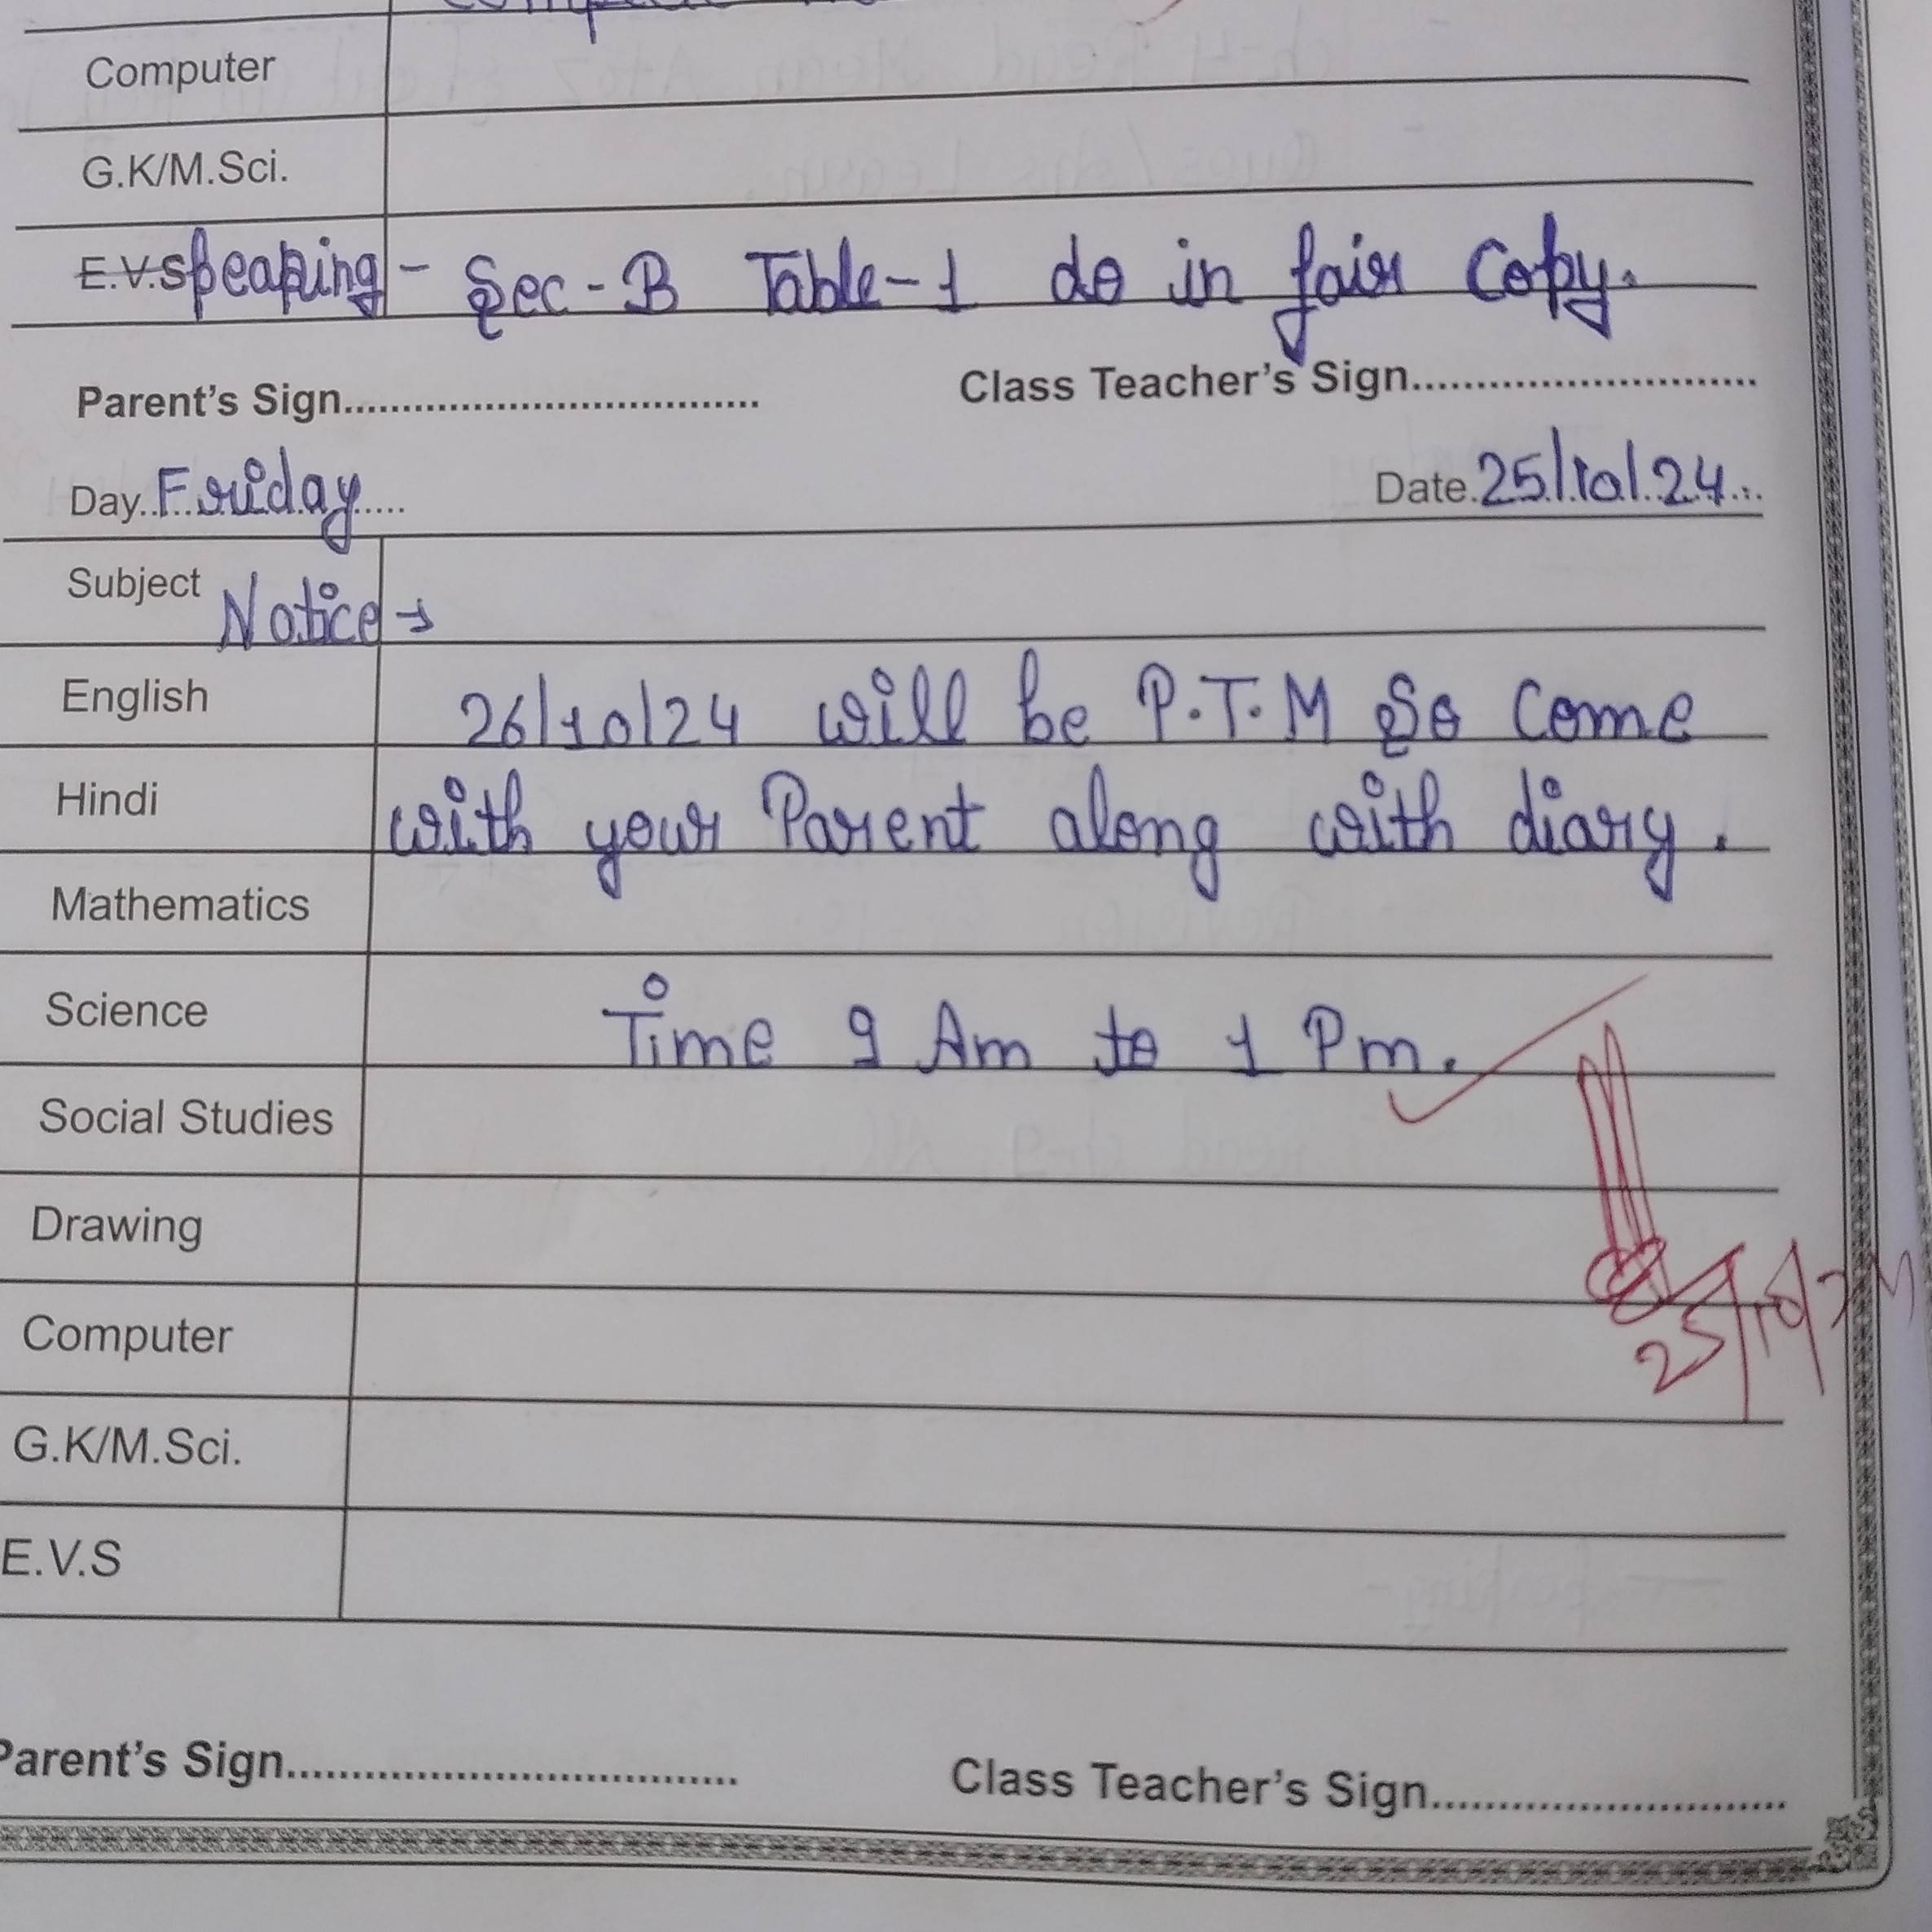 Computer
G.K/M.Sci.
E.V.Speaking - Sec-B Table-1 do in fair Copy.
Parent's Sign.................................... Class Teacher's Sign..............................
Day..Friday.... Date.25/10/24...
Subject Notice →
English 26/10/24 will be P.T.M So Come
Hindi with your Parent along with diary.
Mathematics
Science Time 9 Am to 1 Pm.
Social Studies
Drawing
25/10/24
Computer
G.K/M.Sci.
E.V.S
Parent's Sign.................................... Class Teacher's Sign..............................